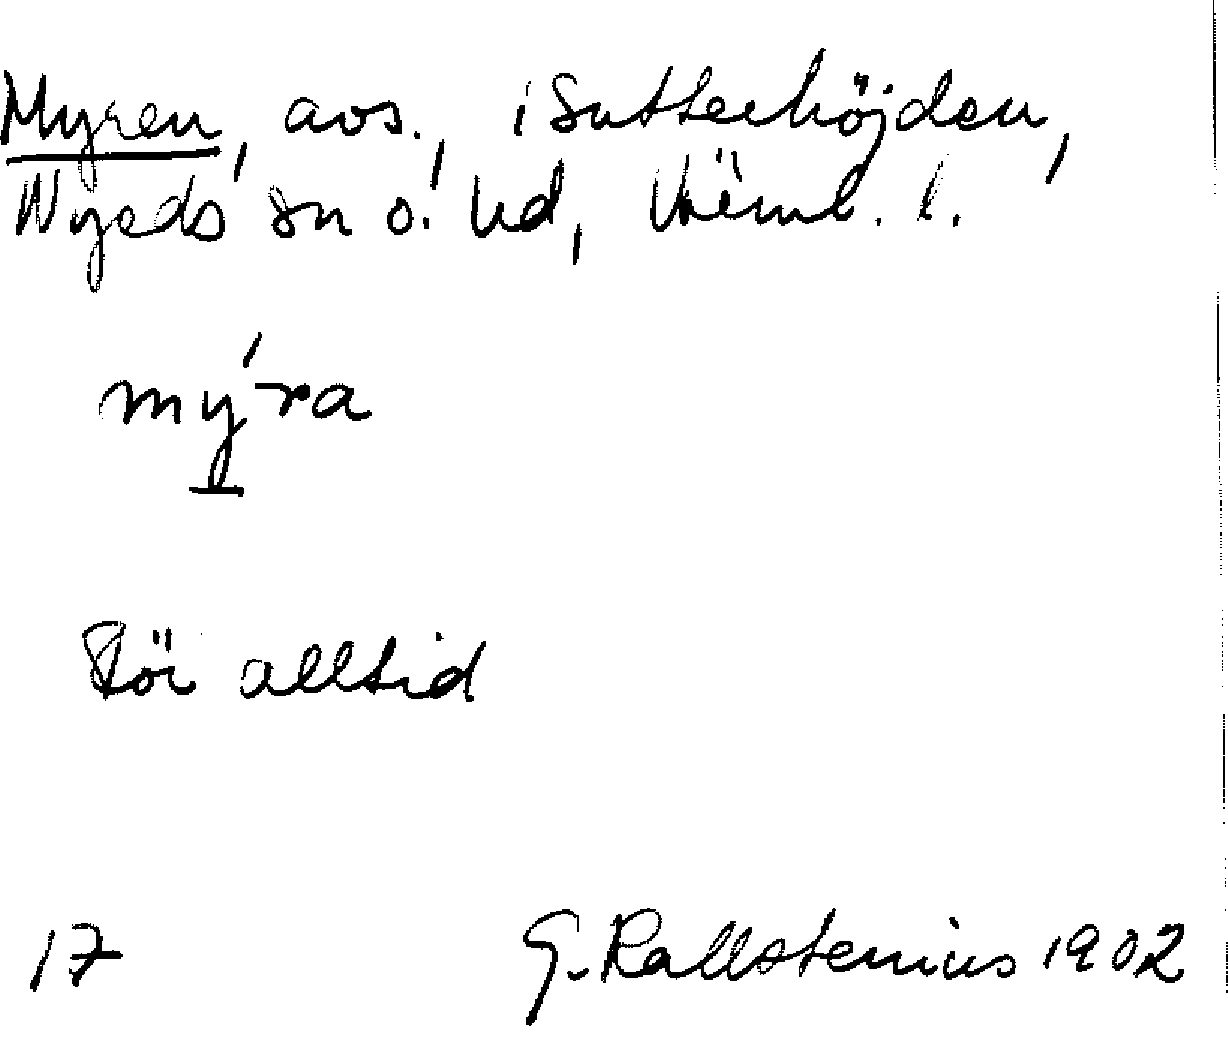 Myren, avs., i Sutterhöjden,
Nyeds sn o. hd, Värml. l.
mý̱ra
Bör alltid
17 G. Kallstenius 1902